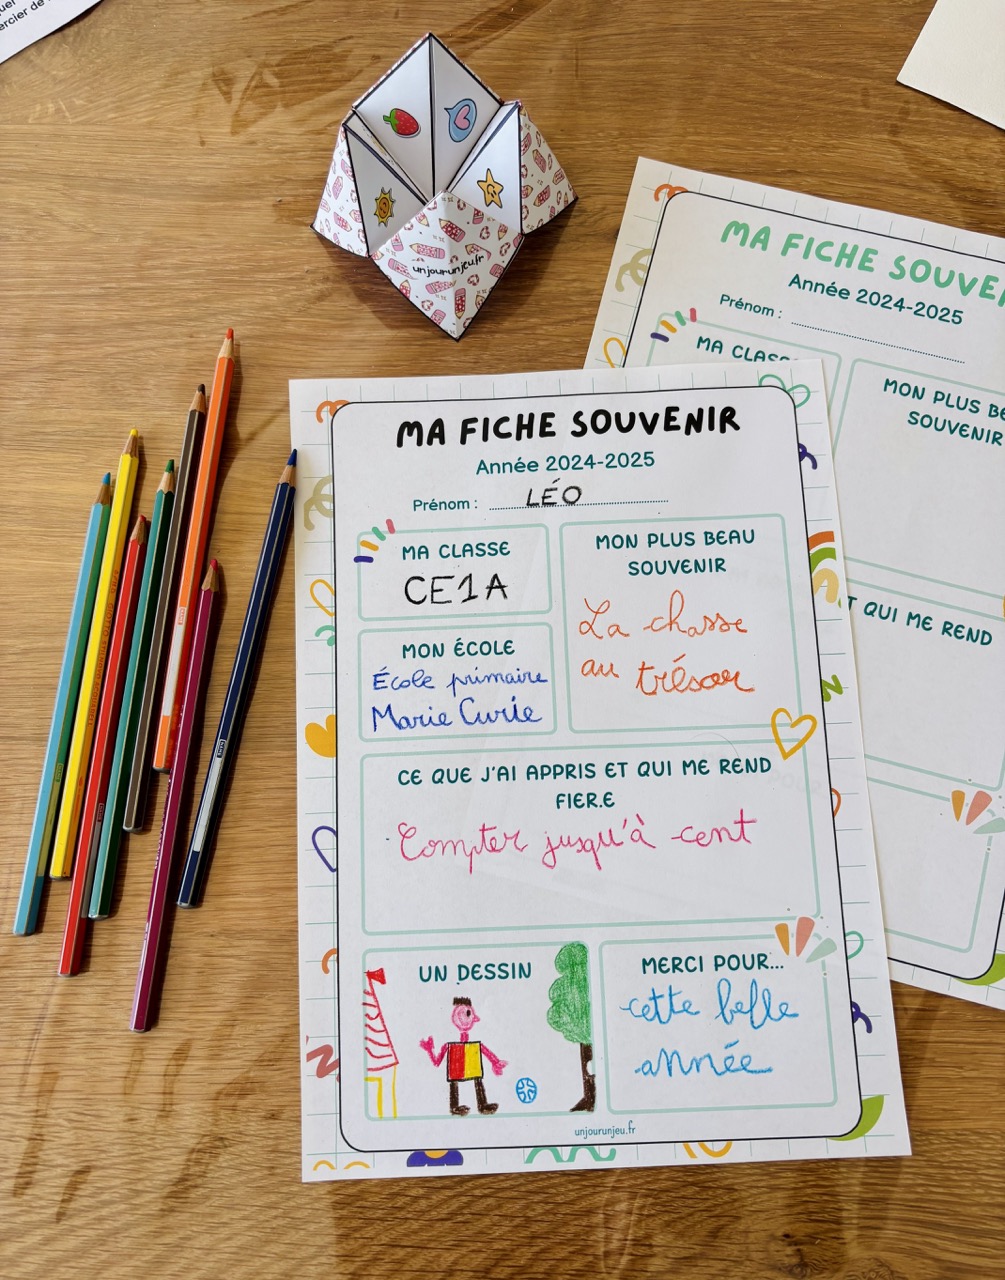 ercier de
unjourunjeu.fr
MA FICHE SOUVENIR
Année 2024-2025
Prénom : LÉO
MA CLASSE
CE1A
MON ÉCOLE
École primaire
Marie Curie
MON PLUS BEAU
SOUVENIR
La chasse
au trésor
CE QUE J'AI APPRIS ET QUI ME REND
FIER.E
Compter jusqu'à cent
UN DESSIN
MERCI POUR...
cette belle
année
unjourunjeu.fr
MA FICHE SOUVEN
Année 2024-2025
Prénom :
MA CLASS
MON PLUS BE
SOUVENIR
T QUI ME REND